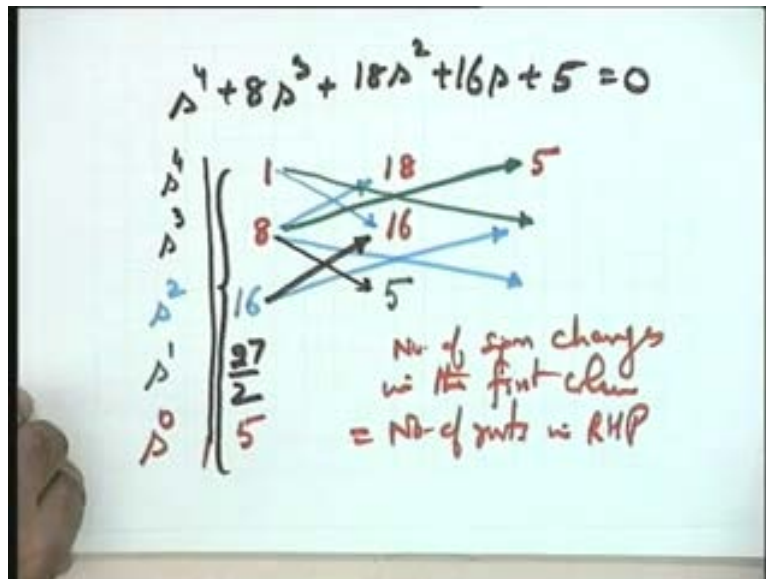 s⁴ + 8s³ + 18s² + 16s + 5 = 0
s⁴ 1 18 5
s³ 8 16
s² 16 5
s¹ 27/2
s⁰ 5
No. of sign changes
in the first
= No. of roots in RHP